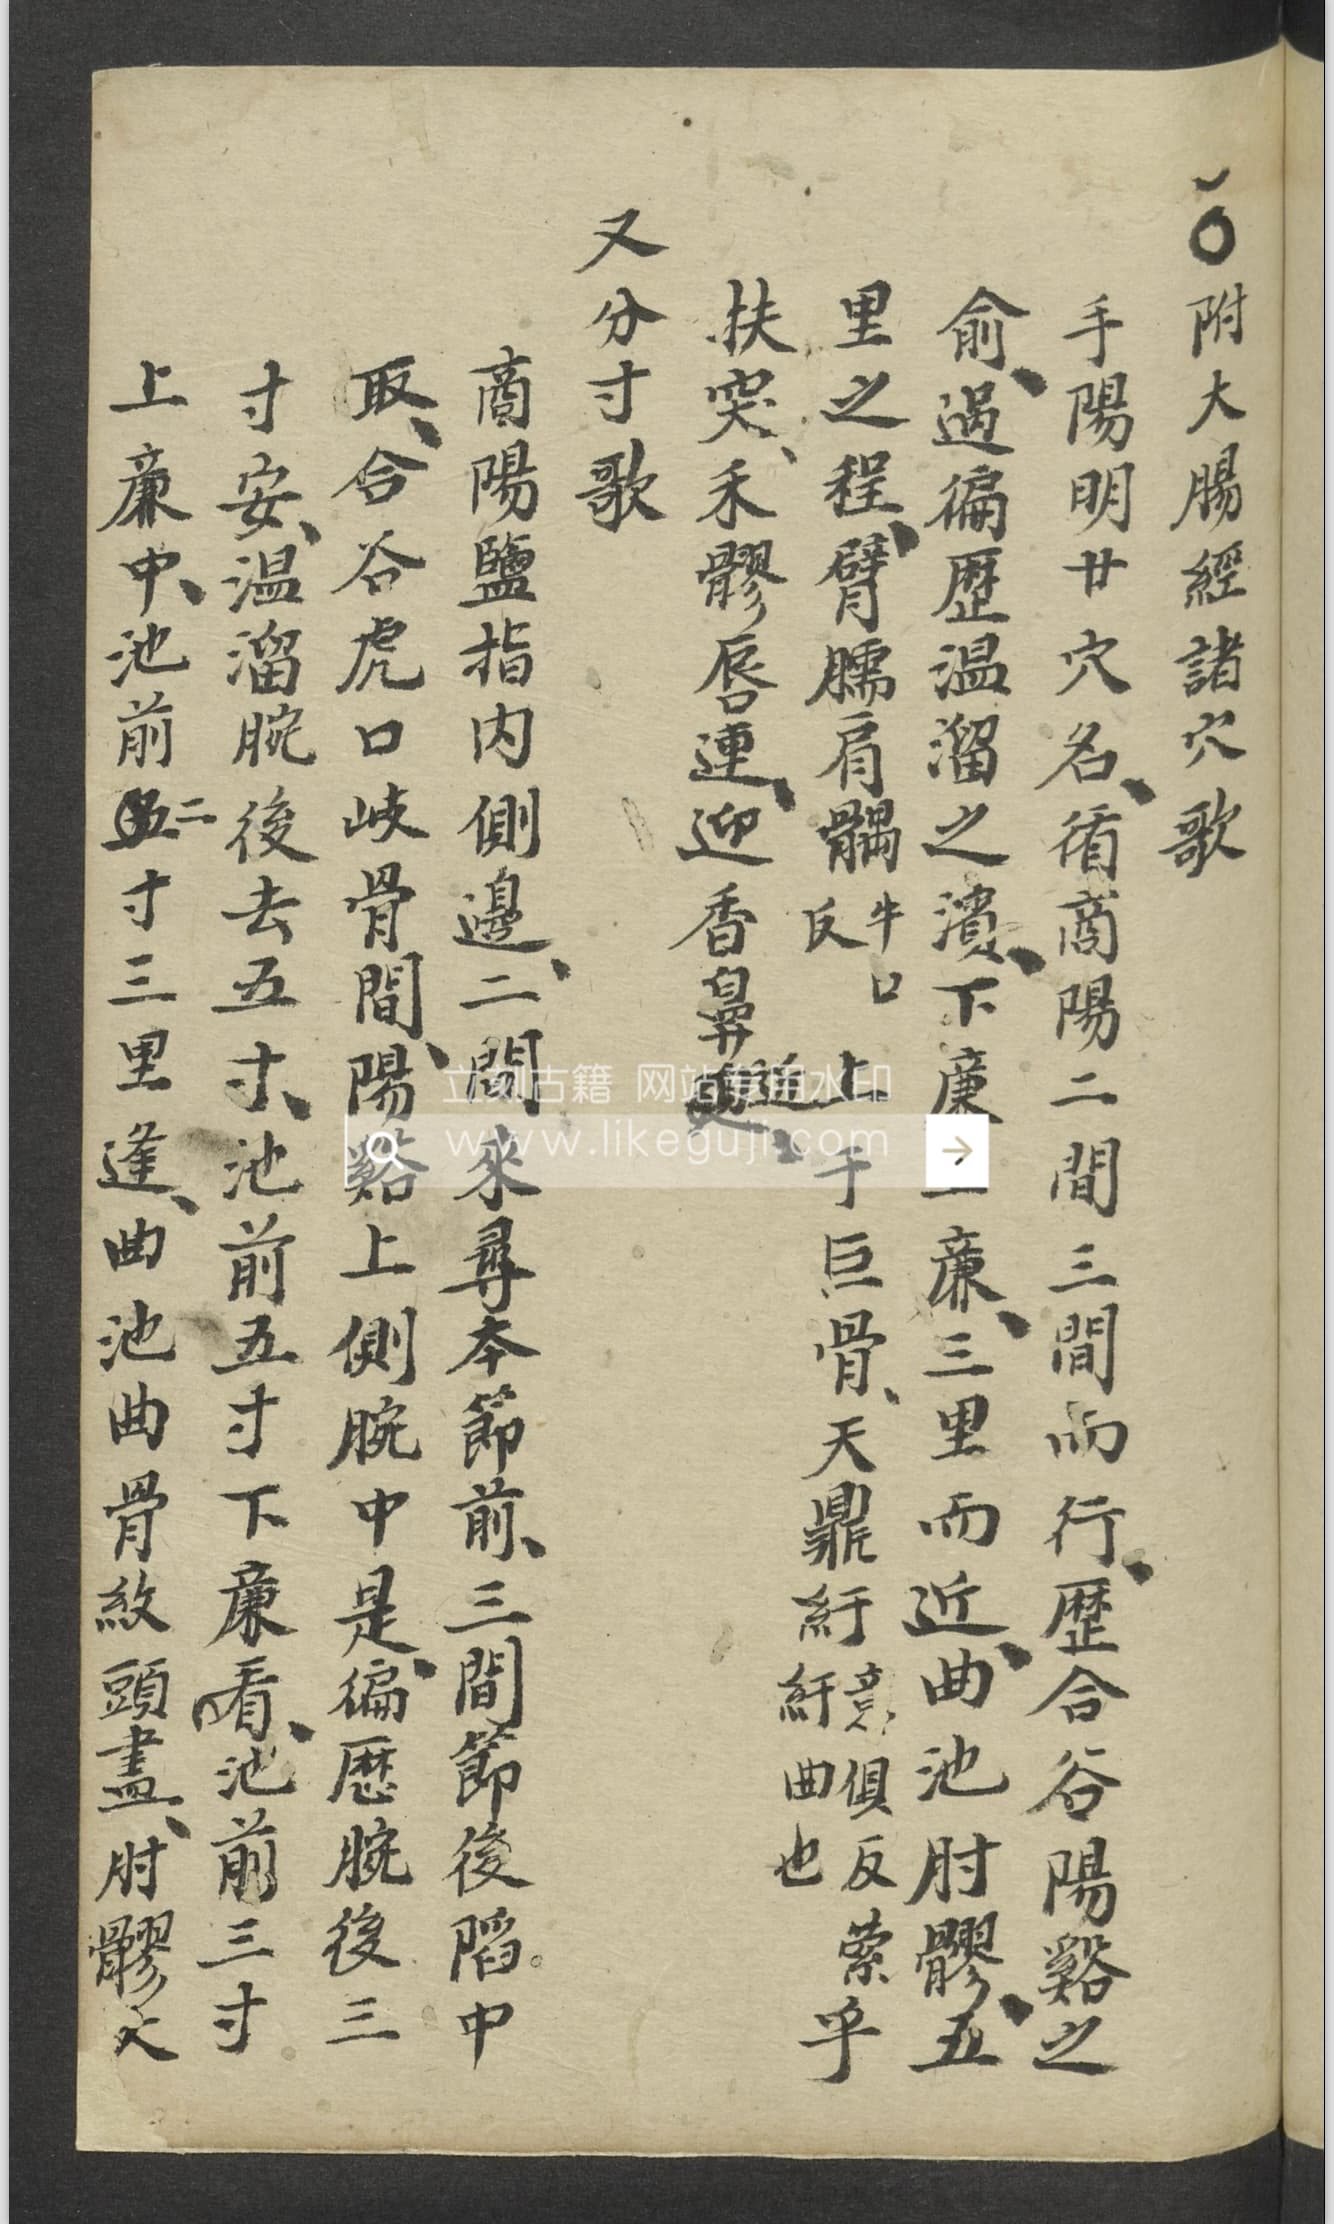 ○附大腸經諸穴歌
手陽明廿穴名、循商陽二間三間而行、歷合谷陽谿之
俞、過偏歷温溜之濱、下廉上廉、三里而近、曲池肘髎、五
里之程、臂臑肩髃牛口反上于巨骨、天鼎紆音俱反縈紆曲也乎
扶突、禾髎唇連、迎香鼻近、
又分寸歌
商陽鹽指内側邊、二間來尋本節前、三間節後陷中
取、合谷虎口岐骨間、陽谿上側腕中是、偏歷腕後三
寸安、温溜腕後去五寸、池前五寸下廉看、池前三寸
上廉中、池前二寸三里逢、曲池曲骨紋頭盡、肘髎大
立刻古籍 网站专用水印
www.likeguji.com